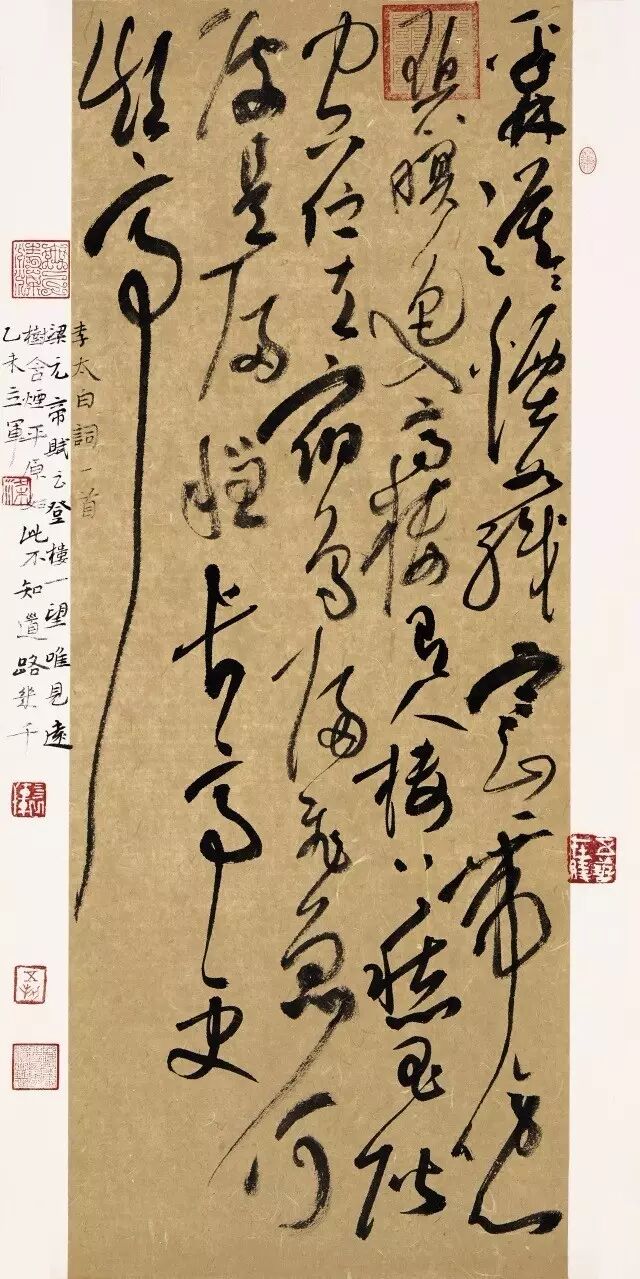 平林漠漠煙如織寒山一帶傷心
碧暝色入高樓有人樓上愁玉階
空佇立宿鳥歸飛急何
處是歸程長亭更
短亭
李太白詞一首
梁元帝賦云登樓一望唯見遠
樹含煙平原如此不知道路幾千
乙未立軍